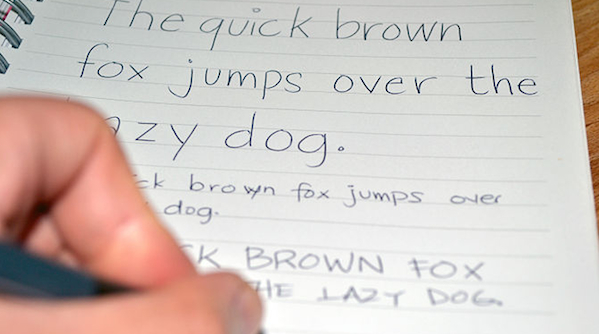 The quick brown
fox jumps over the
azy dog.
ck brown fox jumps over
dog.
CK BROWN FOX
THE LAZY DOG.